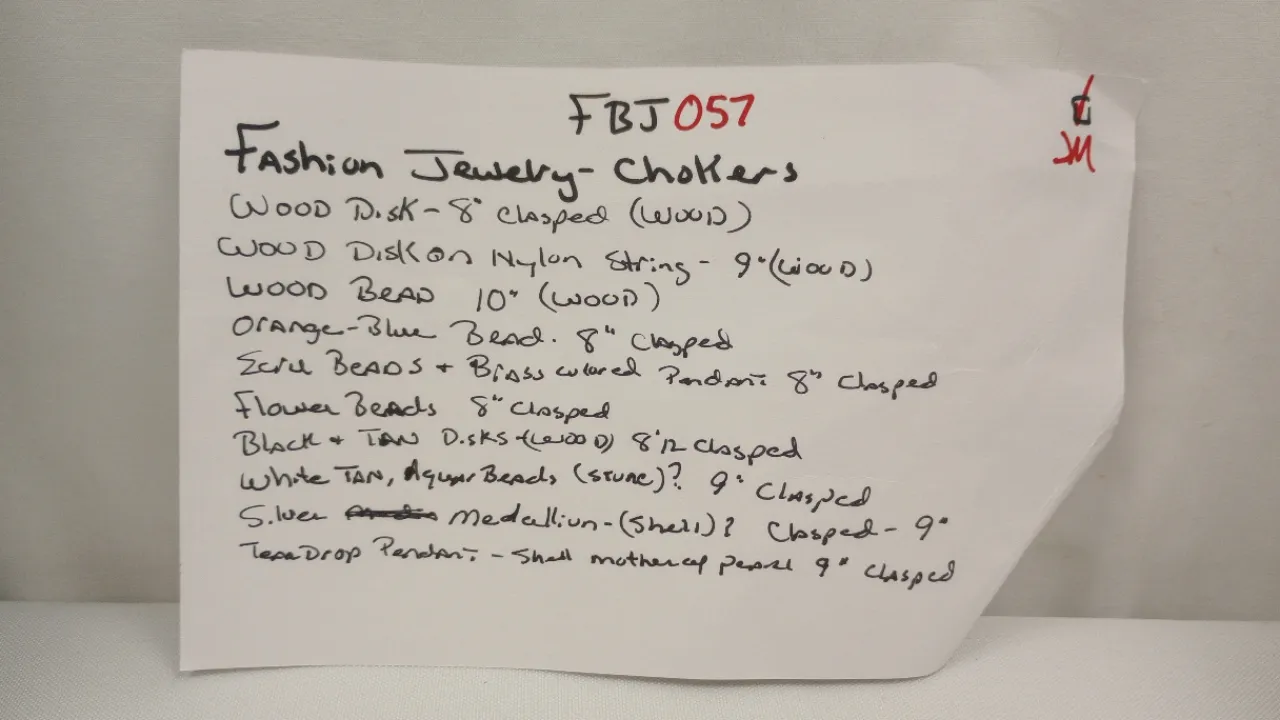 FBJ057
JM
Fashion Jewelry- Chokers
WOOD Disk - 8" Clasped (WOOD)
WOOD Disk on Nylon String - 9" (WOOD)
WOOD BEAD 10" (WOOD)
Orange-Blue Bead. 8" Clasped
Ecru BEADS + Brass colored Pendant 8" Clasped
Flower Beads 8" Clasped
Black + TAN Disks - (WOOD) 8 1/2 Clasped
White TAN, Beads (STONE)? 9" Clasped
Silver Medallion - (Shell)? Clasped - 9"
TearDrop Pendant - Shell mother of pearl 9" Clasped